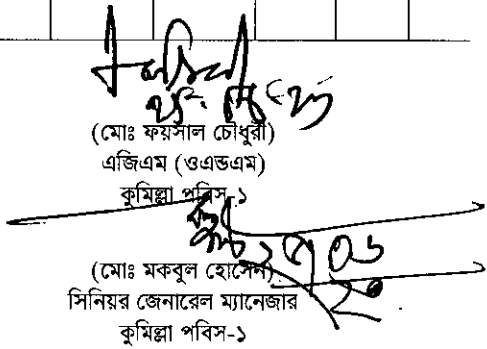 (মোঃ ফয়সাল চৌধুরী)
এজিএম (ওএন্ডএম)
কুমিল্লা পবিস-১
(মোঃ মকবুল হোসেন)
সিনিয়র জেনারেল ম্যানেজার
কুমিল্লা পবিস-১